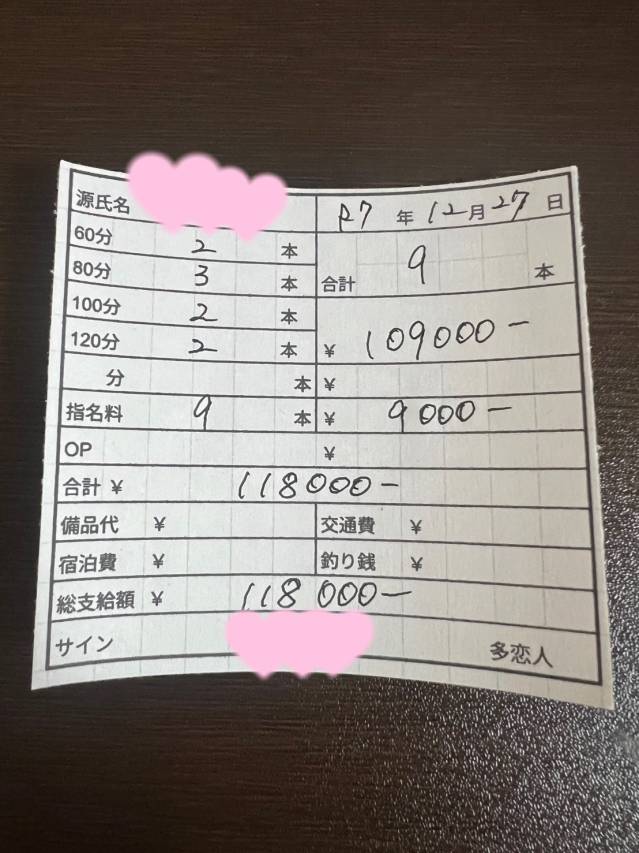 源氏名
R7 年 12 月 27 日
60分 2 本
80分 3 本
合計 9 本
100分 2 本
120分 2 本
¥ 109000-
分 本 ¥
指名料 9 本 ¥ 9000-
OP ¥
合計 ¥ 118000-
備品代 ¥ 交通費 ¥
宿泊費 ¥ 釣り銭 ¥
総支給額 ¥ 118000-
サイン 多恋人